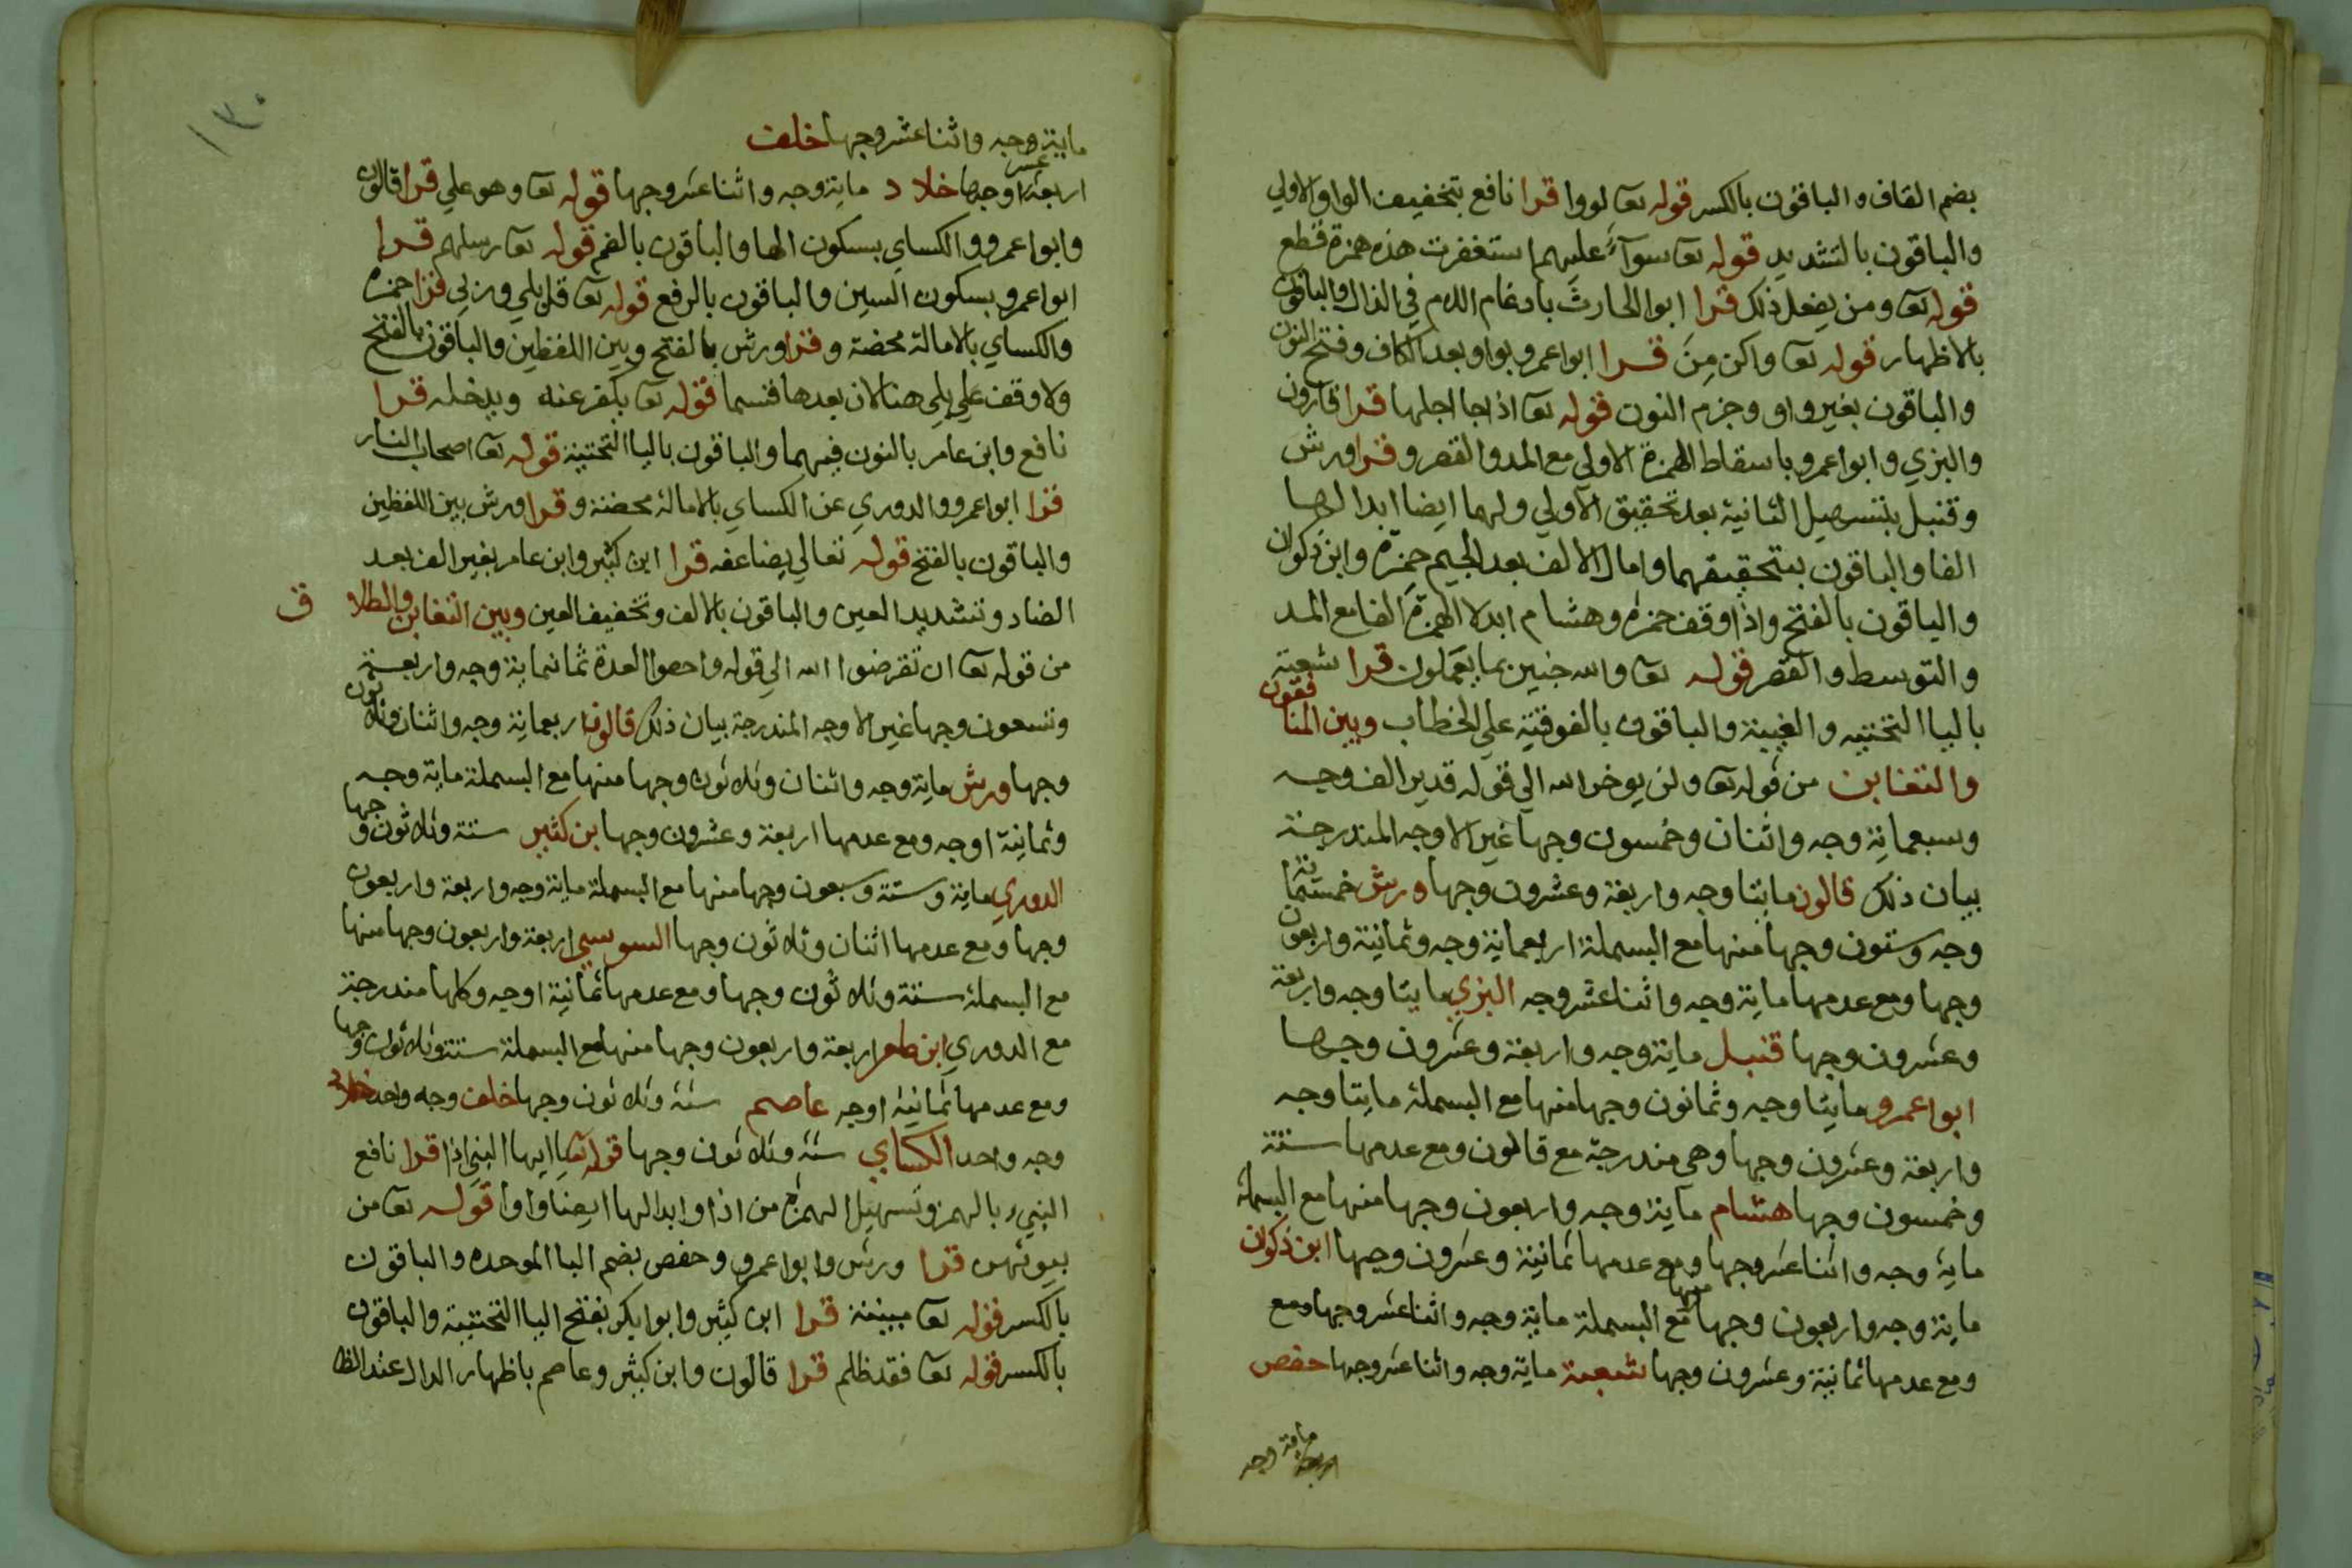 بضم القاف والباقون بالكسر قوله تعا لووا قرا نافع بتخفيف الواو الاولي
والباقون بالتشديد قوله تعا سوآء عليهم استغفرت هذه همزة قطع
قوله تعا ومن يفعل ذلك قرا ابوا الحارث بادغام اللام في الذال والباقون
بالاظهار قوله تعا واكن مِنَ قرا ابوا عمرو بواو بعد الكاف وفتح النون
والباقون بغير واو وجزم النون قوله تعا اذا جا اجلها قرا قالون
والبزي وابوا عمرو باسقاط الهمزة الاولي مع المد والقصر وقرا ورش
وقنبل بتسهيل الثانية بعد تحقيق الاولي ولهما ايضا ابدالها
الفا والباقون بتحقيقهما وامال الالف بعد الجيم حمزة وابن ذكوان
والباقون بالفتح واذا وقف حمزة وهشام ابدلا الهمزة الفا مع المد
والتوسط والقصر قوله تعا والله خبير بما يعملون قرا شعبة
باليا التحتيه والغيبة والباقون بالفوقية علي الخطاب وبين المنافقون
والتغابن من قوله تعا ولن يوخر الله الي قوله قدير الف وجه
وسبعماية وجه واثنان وخمسون وجها غير الاوجه المندرجة
بيان ذلك قالون مايتا وجه واربعة وعشرون وجها ورش خمسماية
وجه وستون وجها منها مع البسملة اربعماية وجه وثمانية واربعون
وجها ومع عدمها ماية وجه واثنا عشر وجه البزي مايتا وجه واربعة
وعشرون وجها قنبل ماية وجه واربعة وعشرون وجها
ابوا عمرو مايتا وجه وثمانون وجها منها مع البسملة مايتا وجه
واربعة وعشرون وجها وهي مندرجة مع قالون ومع عدمها ستة
وخمسون وجها هشام ماية وجه واربعون وجها منها مع البسملة
ماية وجه واثنا عشر وجها ومع عدمها ثمانية وعشرون وجها ابن ذكوان
ماية وجه واربعون وجها منها مع البسملة ماية وجه واثنا عشر وجها ومع
ومع عدمها ثمانية وعشرون وجها شعبة ماية وجه واثنا عشر وجها حفص
ماية وجه
١٣٠
ماية وجه واثنا عشر وجها خلف
اربعة عشر وجها خلاد ماية وجه واثنا عشر وجها قوله تعا وهو علي قرا قالون
وابوا عمرو والكساي بسكون الها والباقون بالضم قوله تعا رسلهم قرا
ابوا عمرو بسكون السين والباقون بالرفع قوله تعا قل بلي وربي قرا حمزة
والكساي بالامالة محضة وقرا ورش بالفتح وبين اللفظين والباقون بالفتح
ولا وقف علي بلي هنا لان بعدها قسما قوله تعا يكفر عنه ويدخله قرا
نافع وابن عامر بالنون فيهما والباقون باليا التحتية قوله تعا اصحاب النار
قرا ابوا عمرو والدوري عن الكساي بالامالة محضة وقرا ورش بين اللفظين
والباقون بالفتح قوله تعالي يضاعفه قرا ابن كثير وابن عامر بغير الف بعد
الضاد وتشديد العين والباقون بالالف وتخفيف العين وبين التغابن والطلاق
من قوله تعا ان تقرضوا الله الي قوله واحصوا العدة ثمانماية وجه واربعة
وتسعون وجها غير الاوجه المندرجة بيان ذلك قالون اربعماية وجه واثنان وثلاثون
وجها ورش ماية وجه واثنان وثلاثون وجها منها مع البسملة ماية وجه
وثمانية اوجه ومع عدمها اربعة وعشرون وجها بن كثير ستة وثلاثون وجها
الدوري ماية وستة وسبعون وجها منها مع البسملة ماية وجه واربعة واربعون
وجها ومع عدمها اثنان وثلاثون وجها السوسي اربعة واربعون وجها منها
مع البسملة ستة وثلاثون وجها ومع عدمها ثمانية اوجه وكلها مندرجة
مع الدوري ابن عامر اربعة واربعون وجها منها مع البسملة ستة وثلاثون وجها
ومع عدمها ثمانية اوجه عاصم ستة وثلاثون وجها خلف وجه واحد خلاد
وجه واحد الكساي ستة وثلاثون وجها قوله تعا يا ايها النبي اذا قرا نافع
النبيء بالهمز وتسهيل الهمزة من اذا وابدالها ايضا واوا قوله تعا من
بيوتهن قرا ورش وابوا عمرو وحفص بضم البا الموحده والباقون
بالكسر قوله تعا مبينة قرا ابن كثير وابوا بكر بفتح اليا التحتية والباقون
بالكسر قوله تعا فقد ظلم قرا قالون وابن كثير وعاصم باظهار الدال عند الظا